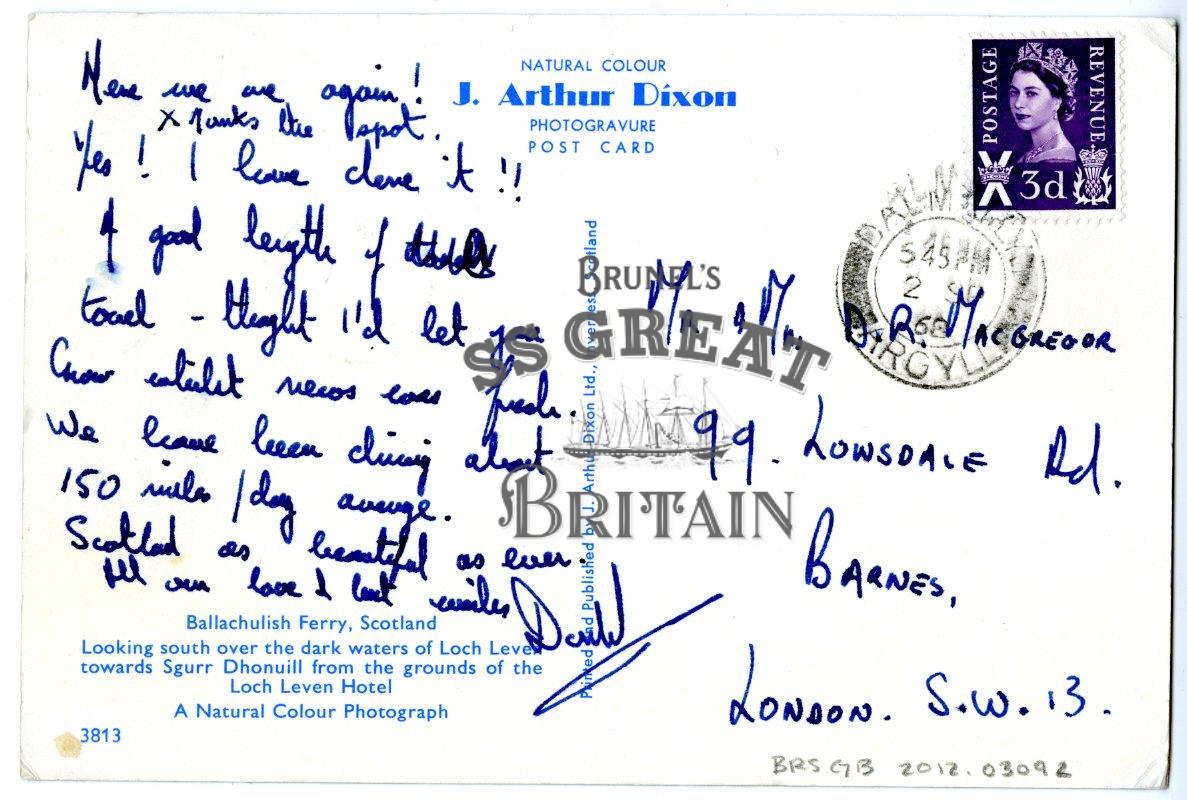 Here we are again!
X Marks the spot.
Yes! I have done it!!
A good length of
towel - thought I'd let you
know whilst news was fresh.
We have been driving about
150 miles / day average.
Scotland as beautiful as ever.
All our love & best wishes
David
Ballachulish Ferry, Scotland
Looking south over the dark waters of Loch Leven
towards Sgurr Dhonuill from the grounds of the
Loch Leven Hotel
A Natural Colour Photograph
3813
NATURAL COLOUR
J. Arthur Dixon
PHOTOGRAVURE
POST CARD
Printed and Published by J. Arthur Dixon Ltd., Inverness, Scotland
BRUNEL'S
SS GREAT
BRITAIN
POSTAGE
REVENUE
3d
5 45 PM
2
68
ARGYLL
Mr & Mrs. D.R. MACGREGOR
99. LOWSDALE Rd.
BARNES,
LONDON. S.W. 13.
BRSGB 2012.03092